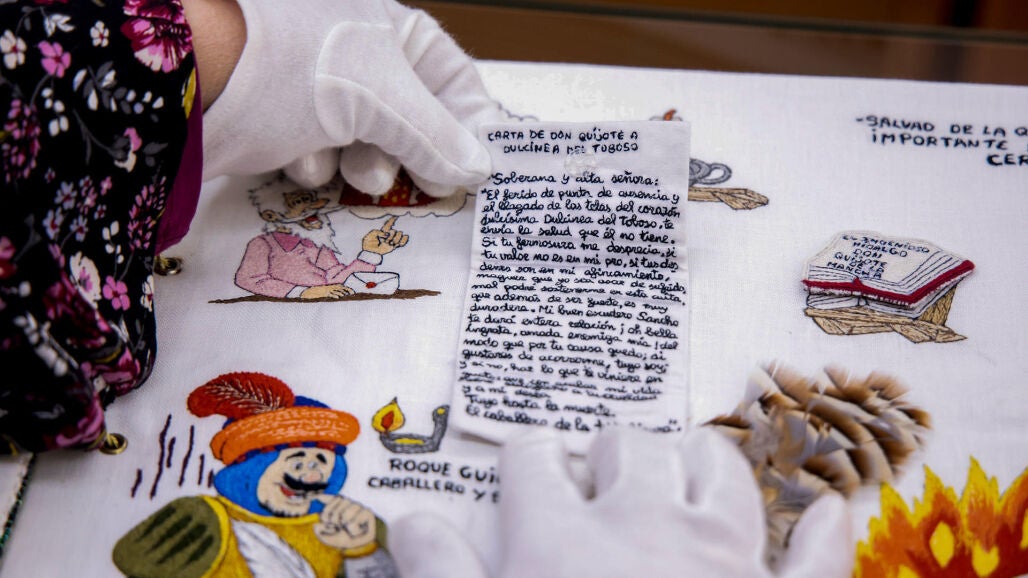 CARTA DE DON QUIJOTE A
DULCINEA DEL TOBOSO
"Soberana y alta señora:
"El ferido de punta de ausencia y
el llagado de las telas del corazón
dulcísima Dulcinea del Toboso, te
envía la salud que él no tiene.
Si tu fermosura me desprecia, si
tu valor no es en mi pro, si tus des
denes son en mi afincamiento,
maguer que yo sea asaz de sufrido,
mal podré sostenerme en esta cuita,
que además de ser fuerte, es muy
duradera. Mi buen escudero Sancho
te dará entera relación ¡oh bella
ingrata, amada enemiga mía! del
modo que por tu causa quedo; si
gustares de acorrerme, tuyo soy;
y si no, haz lo que te viniere en
mi vida
y a mi deseo
Tuyo hasta la muerte.
El caballero de la
-SALVAD DE LA Q
IMPORTANTE
CER
EL INGENIOSO
HIDALGO
DON
QUIJOTE
DE LA
MANCHA
ROQUE GUI
CABALLERO Y B